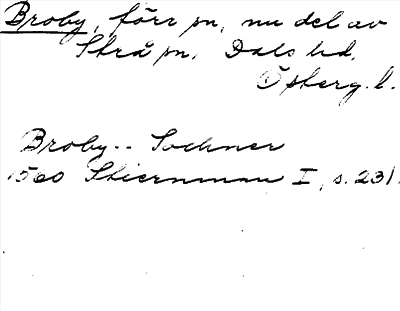 Broby, förr sn, nu del av
Strå sn, Dals hd,
Östberg. l.
Broby-- Sochner
1560 Stiernman I, s. 231.